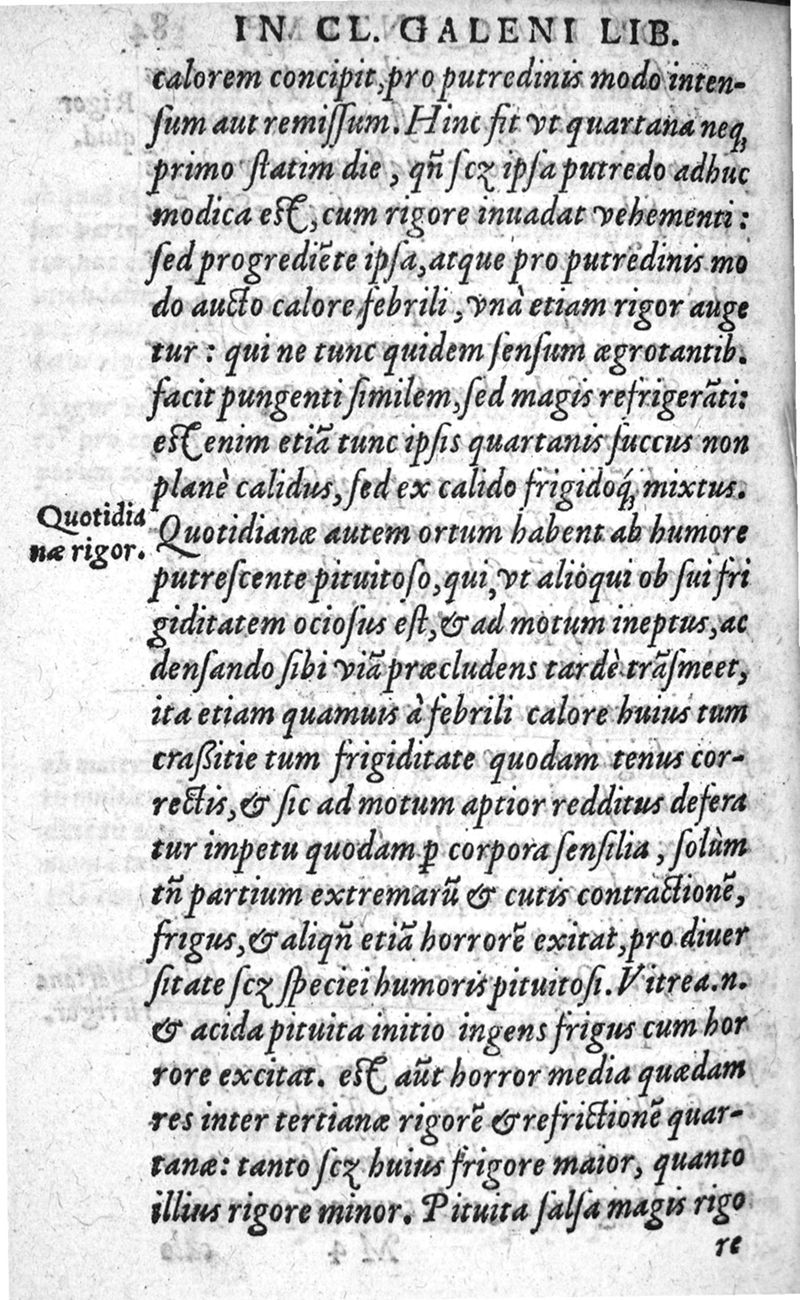 IN CL. GALENI LIB.
calorem concipit, pro putredinis modo inten-
ſum aut remiſſum. Hinc fit vt quartana neq;
primo ſtatim die, qñ ſcꝫ ipſa putredo adhuc
modica eſt, cum rigore inuadat vehementi:
ſed progrediẽte ipſa, atque pro putredinis mo
do aucto calore febrili, vnà etiam rigor auge
tur: qui ne tunc quidem ſenſum ægrotantib.
facit pungenti ſimilem, ſed magis refrigerãti:
eſt enim etiã tunc ipſis quartanis ſuccus non
planè calidus, ſed ex calido frigidoq́; mixtus.
Quotidia
næ rigor.
Quotidianæ autem ortum habent ab humore
putreſcente pituitoſo, qui, vt alioqui ob ſui fri
giditatem ocioſus eſt, & ad motum ineptus, ac
denſando ſibi viã præcludens tardè trãſmeet,
ita etiam quamuis à febrili calore huius tum
craßitie tum frigiditate quodam tenus cor-
rectis, & ſic ad motum aptior redditus defera
tur impetu quodam ꝑ corpora ſenſilia, ſolùm
tñ partium extremarũ & cutis contractionẽ,
frigus, & aliqñ etiã horrorẽ exitat, pro diuer
ſitate ſcꝫ ſpeciei humoris pituitoſi. Vitrea .n.
& acida pituita initio ingens frigus cum hor
rore excitat. eſt aũt horror media quædam
res inter tertianæ rigorẽ & refrictionẽ quar-
tanæ: tanto ſcꝫ huius frigore maior, quanto
illius rigore minor. Pituita ſalſa magis rigo
re